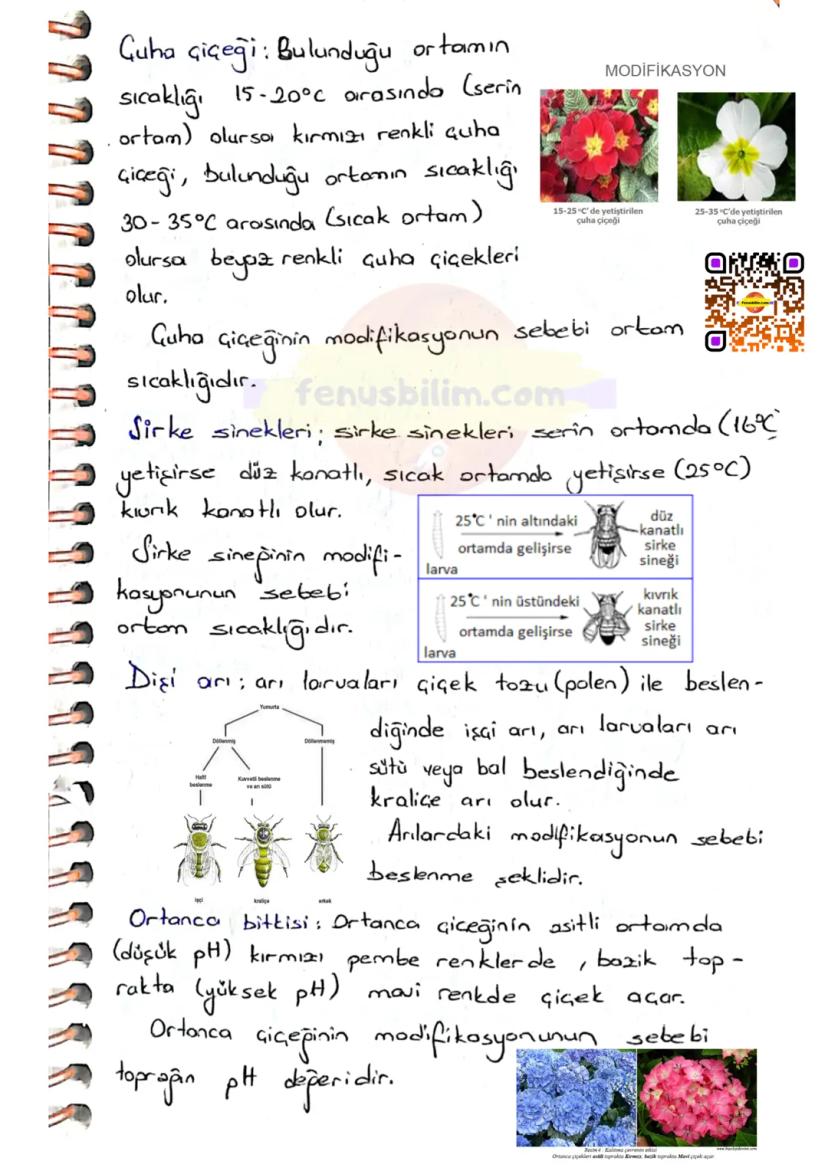 Çuha çiçeği: Bulunduğu ortamın
sıcaklığı 15-20°C arasında (serin
ortam) olursa kırmızı renkli çuha
çiçeği, bulunduğu ortamın sıcaklığı
30-35°C arasında (sıcak ortam)
olursa beyaz renkli çuha çiçekleri
olur.
MODİFİKASYON
15-25 °C'de yetiştirilen
çuha çiçeği
25-35 °C'de yetiştirilen
çuha çiçeği
Fenusbilim.com
Çuha çiçeğinin modifikasyonun sebebi ortam
sıcaklığıdır.
fenusbilim.com
Sirke sinekleri; sirke sinekleri serin ortamda (16°C
yetişirse düz kanatlı, sıcak ortamda yetişirse (25°C)
kıvrık kanatlı olur.
Sirke sineğinin modifi-
kasyonunun sebebi
ortam sıcaklığıdır.
25°C ' nin altındaki
ortamda gelişirse
larva
düz
kanatlı
sirke
sineği
25°C ' nin üstündeki
ortamda gelişirse
larva
kıvrık
kanatlı
sirke
sineği
Dişi arı; arı larvaları çiçek tozu (polen) ile beslen-
diğinde işçi arı, arı larvaları arı
sütü veya bal beslendiğinde
kraliçe arı olur.
Arılardaki modifikasyonun sebebi
beslenme şeklidir.
Yumurta
Döllenmiş
Döllenmemiş
Hafif
beslenme
Kuvvetli beslenme
ve arı sütü
işçi
kraliçe
erkek
Ortanca bitkisi: Ortanca çiçeğinin asitli ortamda
(düşük pH) kırmızı pembe renklerde, bazik top-
rakta (yüksek pH) mavi renkde çiçek açar.
Ortanca çiçeğinin modifikasyonunun sebebi
toprağın pH değeridir.
Resim 4 : Kalıtıma çevrenin etkisi
Ortanca çiçekleri asitli toprakta Kırmızı; bazik toprakta Mavi çiçek açar